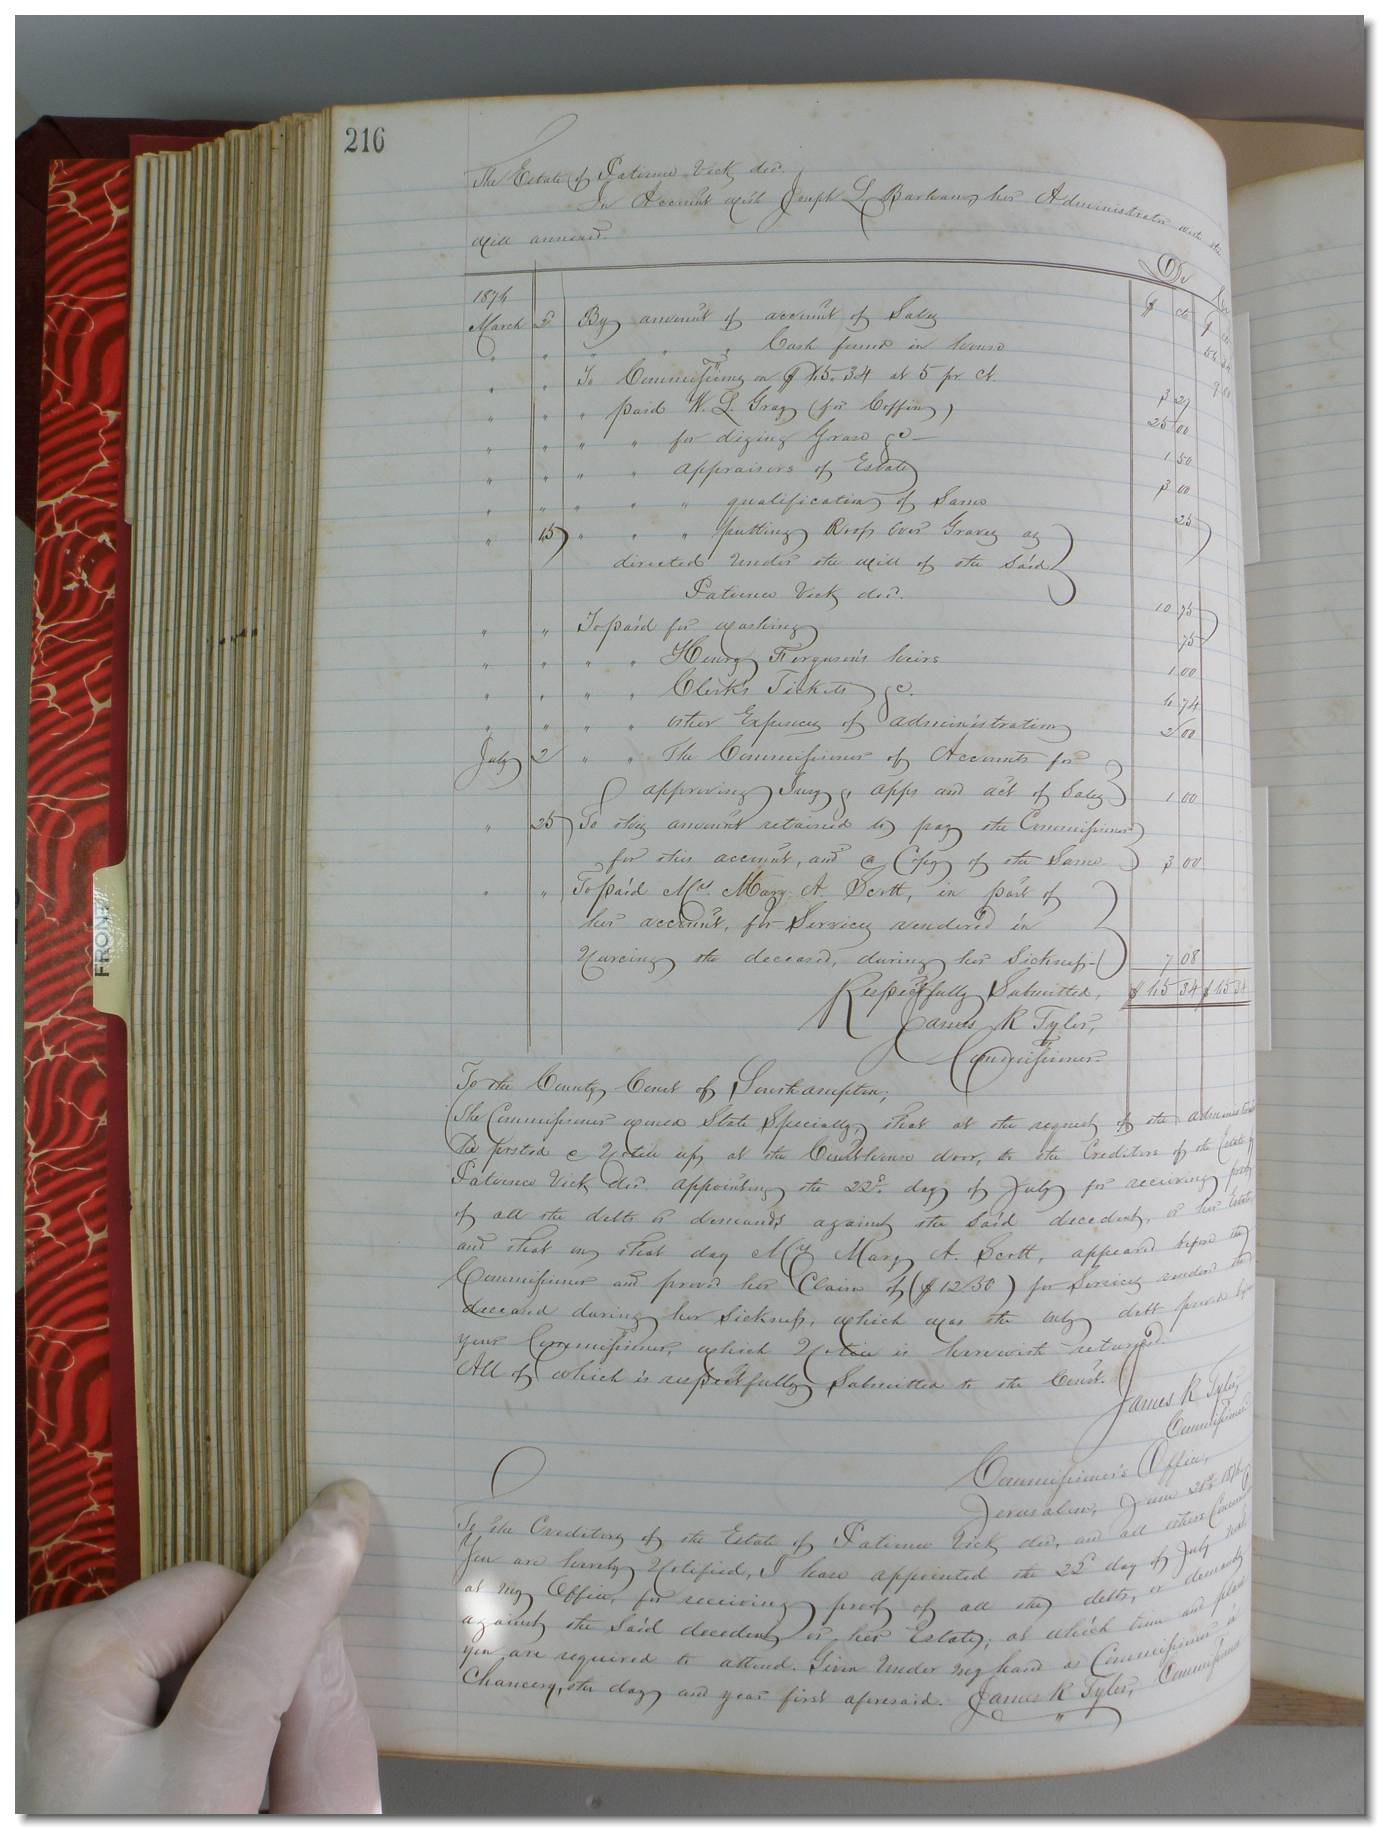 216
The Estate of Patience Vick decd.
In Account with Joseph L. Barham, her Administrator with the
will annexed.
Dr Cr
$ cts $ cts
1874
March 2 By amount of account of Sales
" " " " " Cash found in house
" " To Commissions on $65.34 at 5 pr ct. 3 27
" " " paid W. L. Gray (for Coffin) 25 00
" " " " for diging Grave &c— 1 50
" " " " appraisers of Estate 3 00
" " " " " qualification of Same 25
" 15 " " " putting Roof over Graves as
directed under the will of the Said
Patience Vick decd. 10 75
" " To paid for washing 75
" " " " Henry Ferguson's heirs 1 00
" " " " Clerk's Tickets &c. 6 74
" " " " other Expences of administration 2 00
July 2 " " The Commissioner of Accounts for
approving Invy & apps and act of Sales 1 00
" 25 To this amount retained to pay the Commissioner
for this account, and a Copy of the Same 3 00
" " To paid Mrs. Mary A. Scott, in part of
her account, for Services rendered in
Nurcing the deceased, during her Sickness— 7 08
Respectfully Submitted, $65 34 $65 34
James R Tyler,
Commissioner
To the County Court of Southampton;
The Commissioner would State Specially, that at the request of the administrator
He posted a Notice up, at the Courthouse door, to the Creditors of the Estate of
Patience Vick decd. appointing the 22d. day of July for receiving proof
of all the debts or demands against the said decedent, or her Estate,
and that on that day Mrs Mary A. Scott, appeared before the
Commissioner and proved her Claim of ($12.50) for Services rendered the
deceased during her Sickness, which was the only debt proved before
your Commissioner, which Notice is herewith returned.
All of which is respectfully Submitted to the Court.
James R Tyler,
Commissioner
Commissioner's Office,
Jerusalem, June 21st 1874
To the Creditors of the Estate of Patience Vick decd, and all others Concerned
You are hereby Notified, I have appointed the 22d day of July next
at my Office, for receiving proof of all the debts, or demands
against the Said decedent or her Estate; at which time and place
you are required to attend. Given under my hand as Commissioner in
Chancery, the day and year first aforesaid. James R Tyler, Commissioner
FRONT